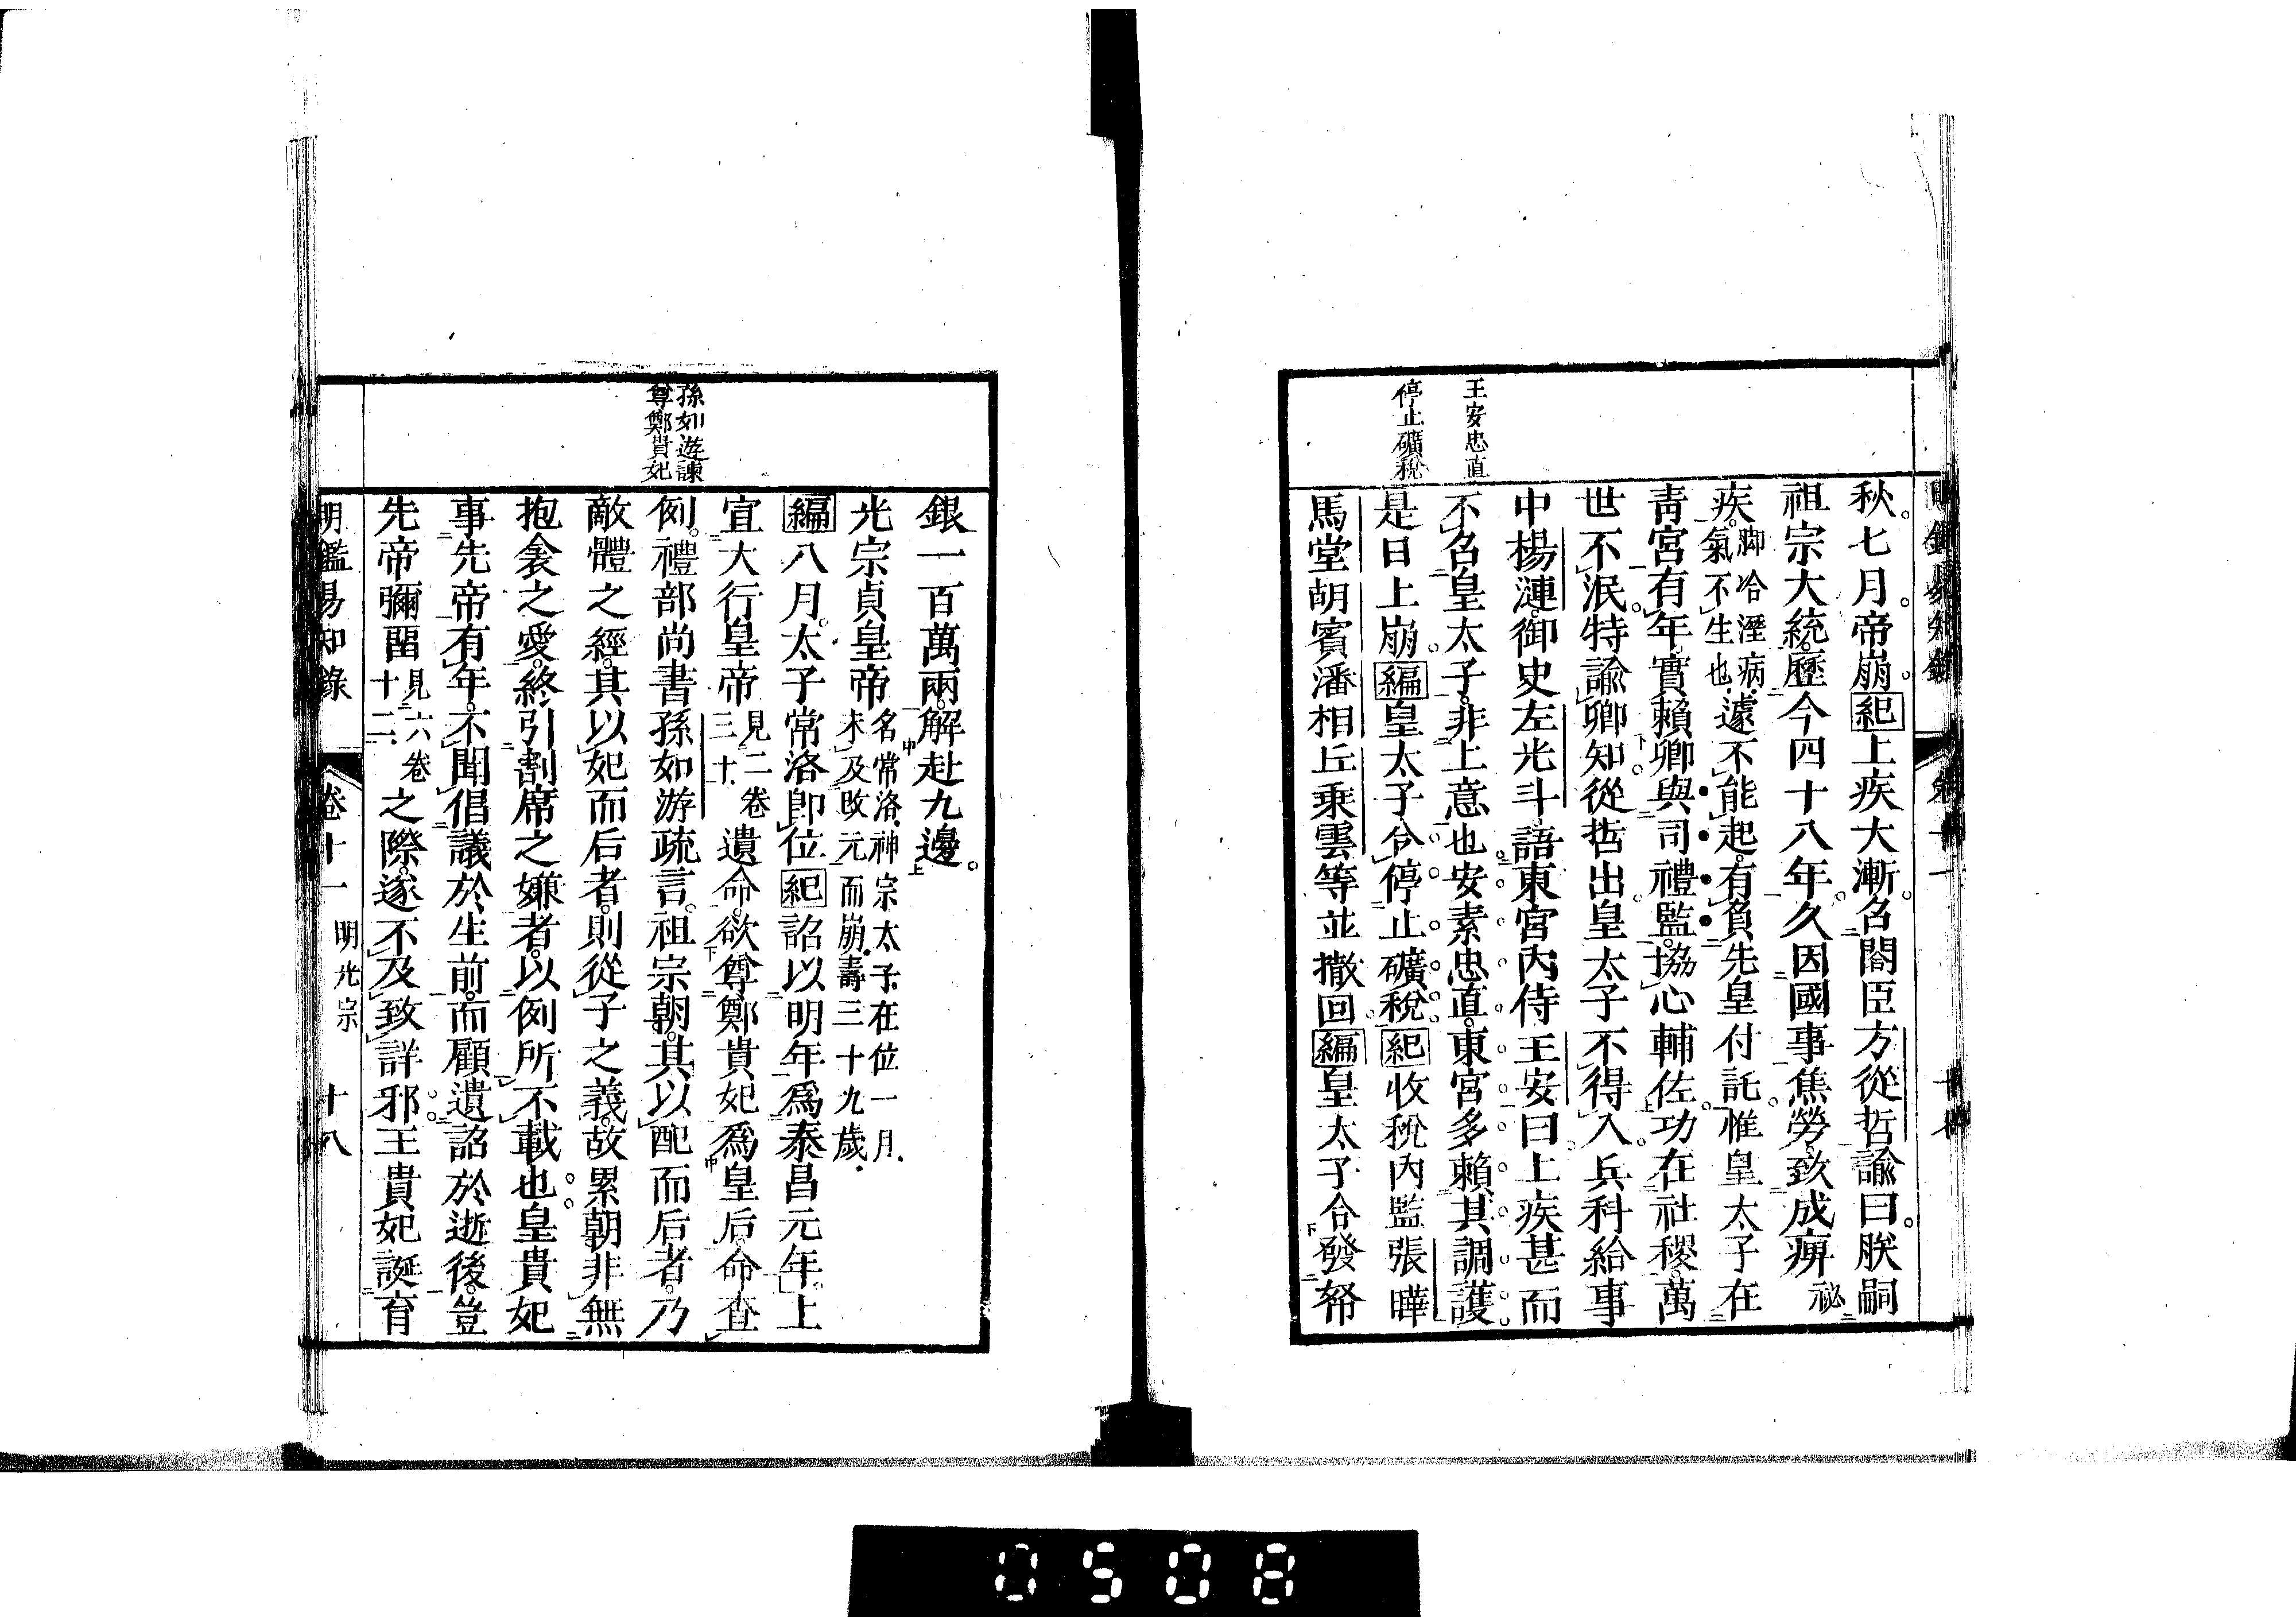 王安忠直
停止礦稅
秋七月帝崩紀上疾大漸召閣臣方從哲諭曰朕嗣
祖宗大統歷今四十八年久因國事焦勞致成痹祕
疾脚冷溼病氣不生也遽不能起有負先皇付託惟皇太子在
靑宮有年實賴卿與司禮監協心輔佐功在社稷萬
世不泯特諭卿知從哲出皇太子不得入兵科給事
中楊漣御史左光斗語東宮內侍王安曰上疾甚而
不召皇太子非上意也安素忠直東宮多賴其調護
是日上崩編皇太子令停止礦稅紀收稅內監張曄
馬堂胡賓潘相丘乘雲等並撤回編皇太子令發帑
孫如遊諫
尊鄭貴妃
銀一百萬兩解赴九邊
光宗貞皇帝名常洛神宗太子在位一月未及改元而崩壽三十九歲
編八月太子常洛卽位紀詔以明年爲泰昌元年上
宣大行皇帝見二卷三十遺命欲尊鄭貴妃爲皇后命查
例禮部尚書孫如游疏言祖宗朝其以配而后者乃
敵體之經其以妃而后者則從子之義故累朝非無
抱衾之愛終引割席之嫌者以例所不載也皇貴妃
事先帝有年不聞倡議於生前而顧遺詔於逝後豈
先帝彌留見六卷十二之際遂不及致詳邪王貴妃誕育
明鑑易知錄 卷十一 明光宗 十八
0508